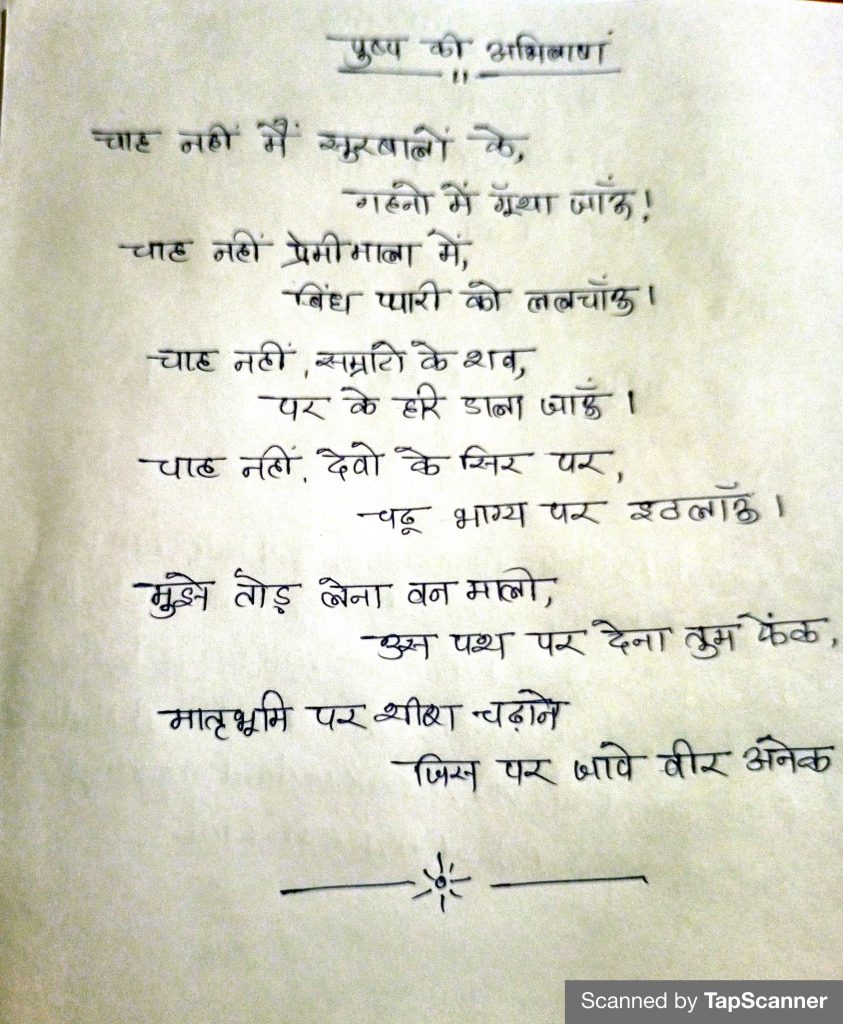 पुष्प की अभिलाषा
चाह नहीं मैं सुरबालों के,
गहनो में गूँथा जाँऊ!
चाह नहीं प्रेमीमाला में,
बिंध प्यारी को ललचाँऊ।
चाह नहीं, सम्राटो के शव,
पर के हरि डाला जाऊँ।
चाह नहीं, देवो के सिर पर,
चढू भाग्य पर इठलाँऊ।
मुझे तोड़ लेना वन माली,
उस पथ पर देना तुम फेंक,
मातृभूमि पर शीश चढ़ाने
जिस पर जावे वीर अनेक
Scanned by TapScanner